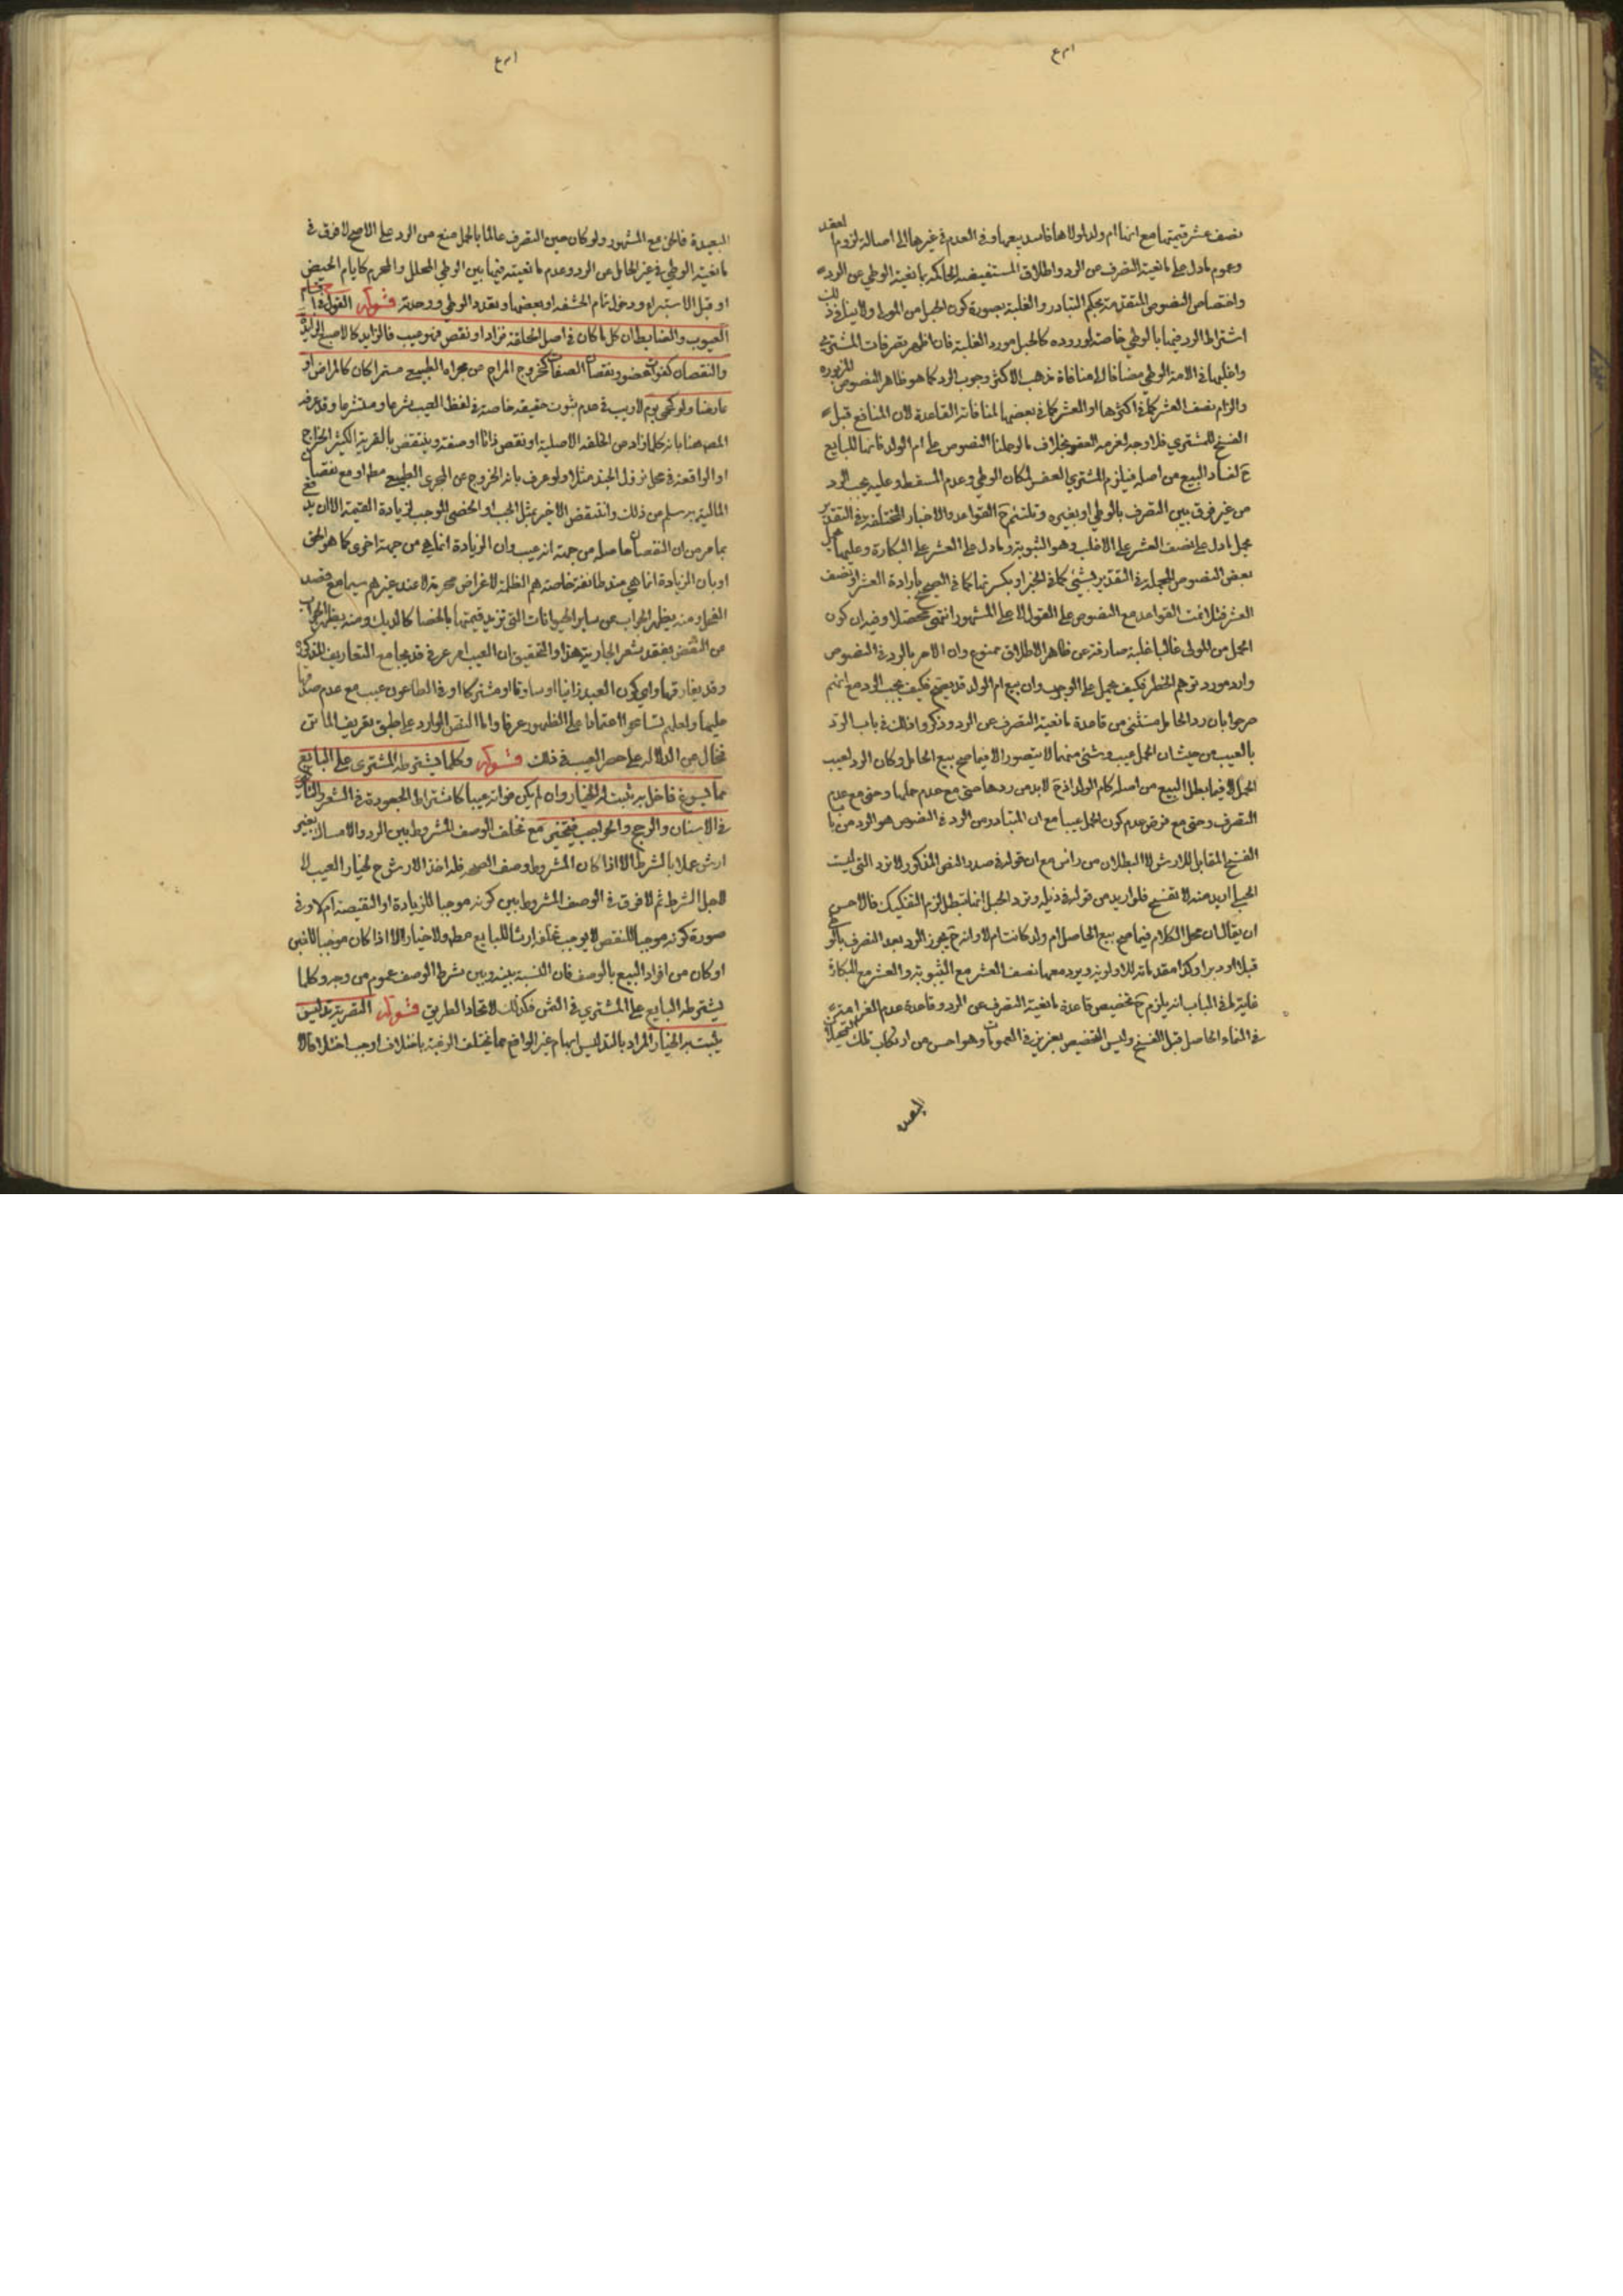 نصف عشر قيمتها مع انها ام ولد لولاها فاسد بيعها وفي العدم في غيرها الى اصالة لزوم العقد
وعموم مادل على مانعية التصرف عن الرد واطلاق المستفيضة الحاكمة بمانعية الوطي عن الرد
واختصاص النصوص المتقدمة بحكم التبادر والغلبة بصورة كون الحبل من المولى ولا ينافي ذلك
اشتراط الرد فيها بالوطي خاصة لوروده كالحبل مورد الغلبة فان اظهر تصرفات المشتري
واغلبها في الامة الوطي مضافا الى منافاة مذهب الاكثر وجوب الرد كما هو ظاهر النصوص المزبورة
والزام نصف العشر كما في اكثرها او العشر كما في بعضها لمنافاته القاعدة لان المنافع قبل
الفسخ للمشتري فلا وجه لغرمه العقر بخلاف ما لو حملنا النصوص على ام الولد فانها للبايع
ح لفساد البيع من اصله فيلزم المشتري العقر لمكان الوطي وعدم المسقط وعليه يجب الرد
من غير فرق بين التصرف بالوطي او بغيره وتلتئم ح القواعد والاخبار المختلفة في التقدير
بحمل مادل على نصف العشر على الاغلب وهو الثيوبة ومادل على العشر على البكارة وعليها يحمل
بعض النصوص المجملة في التقدير بشئ كما في الخبر او يكسوها كما في الصحيح بارادة العشر او نصف
العشر فتلائمت القواعد مع النصوص على القول الاعلى المشهور انتهى محصلا وفيه ان كون
الحمل من المولى غالبا غلبة صارفة عن ظاهر الاطلاق ممنوع وان الامر بالرد في النصوص
وارد مورد توهم الخطر فكيف يحمل على الوجوب وان بيع ام الولد قد يصح فكيف يجب الرد مع انهم
صرحوا بان رد الحامل مستثنى من قاعدة مانعية التصرف عن الرد وذكروا ذلك في باب الرد
بالعيب من حيث ان الحمل عيب وشئ منهما لا يتصور الا فيما صح بيع الحامل وكان الرد لعيب
الحمل لا فيما بطل البيع من اصله كام الولد اذ ح لابد من ردها حتى مع عدم حملها وحتى مع عدم
التصرف وحتى مع فرض عدم كون الحمل عيبا مع ان المتبادر من الرد في النصوص هو الرد من باب
الفسخ المقابل للارش لا البطلان من راس مع ان قوله في صدد النص المذكور لا ترد التي ليست
الحبلى اريد منه لا تفسخ فلو اريد من قوله في ذيله وترد الحبلى انها تبطل لزم التفكيك فالاحسن
ان يقال ان محل الكلام فيما صح بيع الحامل ام ولد كانت ام لا وانه ح يجوز الرد بعد التصرف بالوطي
قبلا او دبرا وكذا مقدماته للاولوية ويرد معها نصف العشر مع الثيوبة والعشر مع البكارة
غايته في الباب انه يلزم ح تخصيص قاعدة مانعية التصرف عن الرد وقاعدة عدم الغرامة
في النماء الحاصل قبل الفسخ وليس التخصيص بعزيز في العمومات وهو احسن من ارتكاب تلك التمحلات
البعيدة
البعيدة فالحق مع المشهور ولو كان حين التصرف عالما بالحمل منع من الرد على الاصح لا فرق في
مانعية الوطي في غير الحامل عن الرد وعدم مانعيته فيها بين الوطي المحلل والمحرم كايام الحيض
او قبل الاستبراء ودخول تمام الحشفة او بعضها وتعدد الوطي ووحدته قوله القول في اقسام
العيوب والضابط ان كل ما كان في اصل الخلقة فزاد او نقص فهو عيب فالزايد كالاصبع الزايدة
والنقصان كفوات عضو ونقصان الصفات كخروج المزاج عن مجراه الطبيعي مستمرا كان كالمراض او
عارضا ولو كحمى يوم لا ريب في عدم ثبوت حقيقة خاصة في لفظ العيب شرعا ومتشرعا وقد عرفه
المص هنا بانه كلما زاد عن الخلقة الاصلية او نقص ذاتا او صفة وينتقض بالقرية الكثير الخراج
او الواقعة في محل نزول الجند مثلا ولو عرف بانه الخروج عن المجرى الطبيعي مطلقا او مع نقصان
المالية به سلم من ذلك وانتقض الاخير بمثل الجب او الخصي الموجب لزيادة القيمة الا ان يدفع
بما مر من ان النقصان حاصله من جهة انه عيب وان الزيادة انما هي من جهة اخرى كما هو الحق
او بان الزيادة انما هي عند طائفة خاصة هم الظلمة لاغراض محرمة لا عند غيرهم سيما مع قصد
الفحل ومنه يظهر الجواب عن ساير الحيوانات التي تزيد قيمتها بالخصا كالديك ومنه يظهر الجواب
عن النقض بفقد شعر الجارية هذا والتحقيق ان العيب امر عرفي قد يجامع التعاريف المذكورة
وقد يفارقها وابي كون العبد زانيا او سارقا او مشتركا او في الطاعون عيب مع عدم صدقها
عليها ولعلهم تسامحوا اعتمادا على الظهور عرفا واما النص الوارد على طبق تعريف الماتن
فخال من الدلالة على حصر العيب في ذلك قوله وكلما يشترطه المشتري على البايع
مما يسوغ فاخل به يثبت له الخيار وان لم يكن فواته عيبا كاشتراط الجعودة في الشعر والتأشير
في الاسنان والزج والحواجب فيتخير مع تخلف الوصف المشروط بين الرد والامساك بغير
ارش عملا بالشرط الا اذا كان المشروط وصف الصحة فله اخذ الارش ح لخيار العيب لا
لاجل الشرط ثم لا فرق في الوصف المشروط بين كونه موجبا للزيادة او النقيصة ام لا وفي
صورة كونه موجبا للنقص لا يوجب تخلفه ارشا للبايع مطلقا ولا خيار الا اذا كان موجبا للغبن
او كان من افراد البيع بالوصف فان النسبة بينه وبين شرط الوصف عموم من وجه وكلما
يشترطه البايع على المشتري في الثمن فكذلك لاتحاد الطريق قوله التصرية تدليس
يثبت به الخيار المراد بالتدليس ابهام غير الواقع مما يختلف الرغبة باختلافه اوجب اختلافا